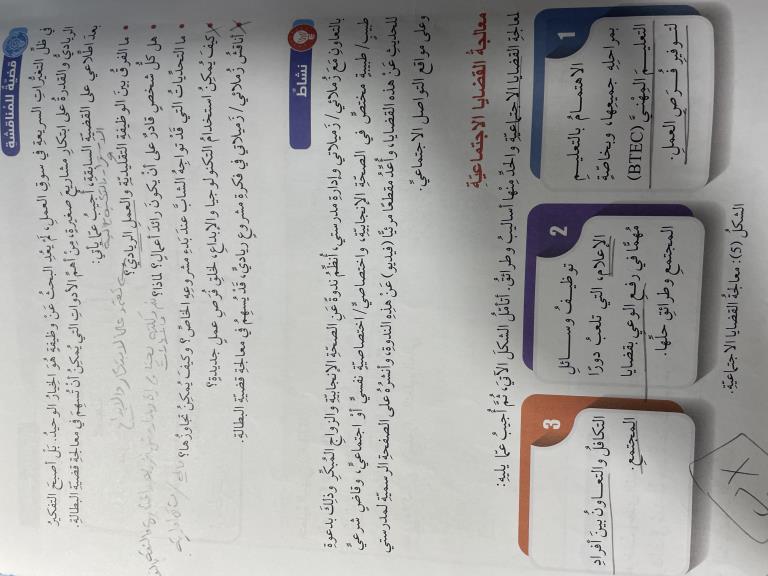 قضيّة للمناقشة
في ظل التغيّرات السريعة في سوق العمل، لم يعُدِ البحثُ عن وظيفةٍ هو الخيارُ الوحيدُ. بل أصبحَ التفكيرُ
الرياديُّ والقدرةُ على ابتكارِ مشاريعَ صغيرةٍ، مِنْ أهمِّ الأدواتِ التي يُمكِنُ أنْ تُسهِمَ في معالجةِ قضيّةِ البطالةِ.
بعدَ اطّلاعي على القضيّةِ السابقةِ، أُجيبُ عمّا يأتي:
• ما الفرقُ بينَ الوظيفةِ التقليديّةِ والعملِ الرياديِّ؟
• هل كلُّ شخصٍ قادرٌ على أنْ يكونَ رائدَ أعمالٍ؟ لماذا؟
• ما التحدّياتُ التي قد تواجِهُ الشابَّ عندَ بدءِ مشروعِهِ الخاصِّ؟ وكيفَ يُمكِنُ تجاوزُها؟
• كيفَ يُمكِنُ استخدامُ التكنولوجيا والإبداعِ، لخلقِ فُرَصِ عملٍ جديدةٍ؟
• أُناقشُ زُملائي/ زميلاتي في فكرةِ مشروعٍ رياديٍّ، قدْ يُسهِمُ في معالجةِ قضيّةِ البطالةِ.
نشاطٌ
بالتعاونِ معَ زُملائي/ زميلاتي وإدارةِ مدرستي، أُنظِّمُ ندوةً عنِ الصحّةِ الإنجابيّةِ والزواجِ المُبكِّرِ وذلكَ بدعوةِ
طبيبٍ/ طبيبةٍ مختصٍّ في الصحّةِ الإنجابيّةِ، واختصاصيٍّ/ اختصاصيّةٍ نفسيٍّ أو اجتماعيٍّ، وقاضٍ شرعيٍّ
للحديثِ عنْ هذهِ القضايا، وأُعِدُّ مقطعًا مرئيًّا (فيديو) عنْ هذهِ الندوةِ، وأنشُرُهُ على الصفحةِ الرسميّةِ لمدرستي
وعلى مواقعِ التواصلِ الاجتماعيِّ.
معالجةُ القضايا الاجتماعيّةِ
لمعالجةِ القضايا الاجتماعيّةِ والحدِّ مِنْها أساليبُ وطرائقُ. أتأمّلُ الشكلَ الآتيَ، ثُمَّ أُجيبُ عمّا يليهِ:
1
الاهتمامُ بالتعليمِ
بمراحلِهِ جميعِها، وبخاصّةٍ
التعليمُ المِهْنيُّ (BTEC)
لتوفيرِ فُرَصِ العملِ.
2
توظيفُ وسائلِ
الإعلامِ، التي تلعبُ دورًا
مُهمًّا في رفعِ الوعيِ بقضايا
المجتمعِ وطرائقِ حلِّها.
3
التكافلُ والتعاونُ بينَ أفرادِ
المجتمعِ.
الشكلُ (5): معالجةُ القضايا الاجتماعيّةِ.